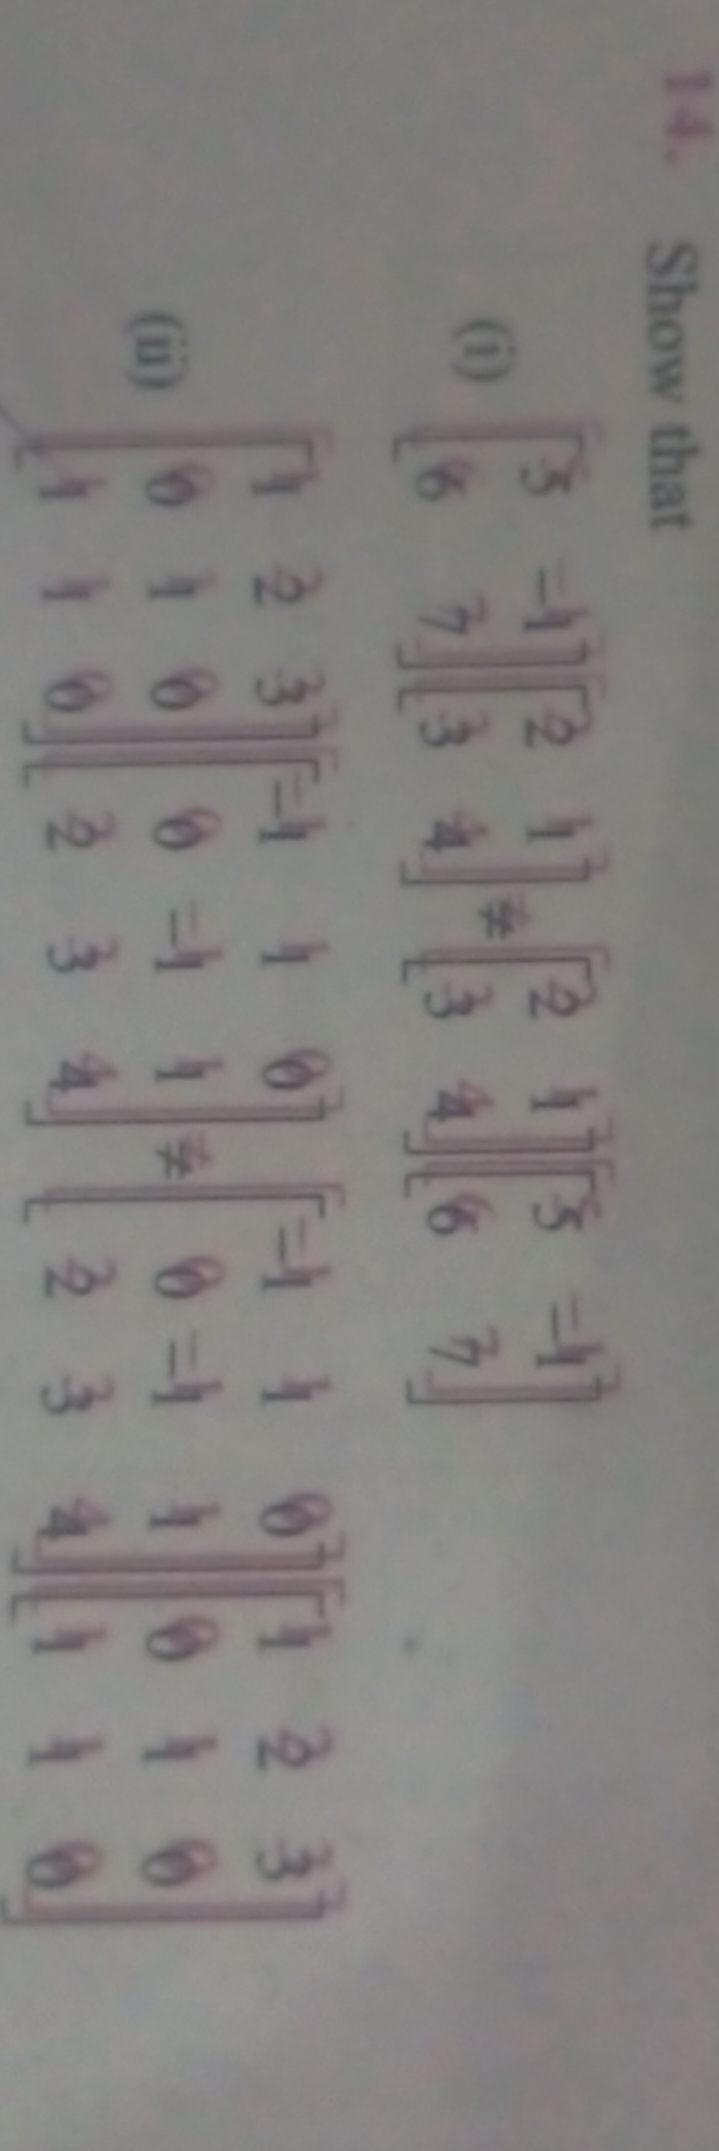 14. Show that
(i) [5 -1; 6 7] [2 1; 3 4] ≠ [2 1; 3 4] [5 -1; 6 7]
(ii) [1 2 3; 0 1 0; 1 1 0] [-1 1 0; 0 -1 1; 2 3 4] ≠ [-1 1 0; 0 -1 1; 2 3 4] [1 2 3; 0 1 0; 1 1 0]